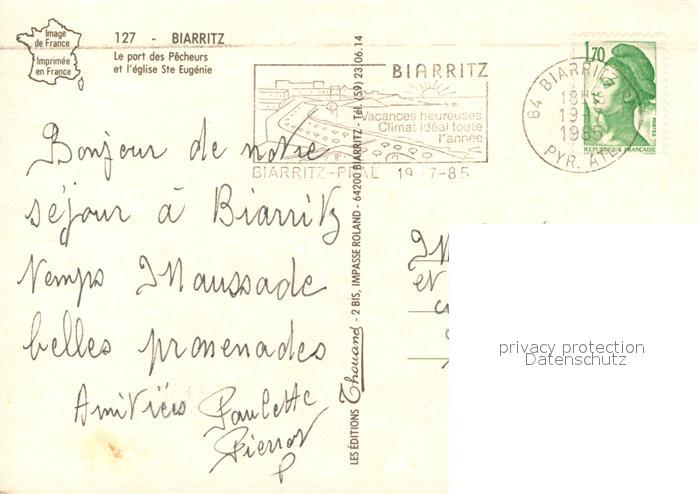 Image
de France
Imprimée
en France
127 - BIARRITZ
Le port des Pêcheurs
et l'église Ste Eugénie
BIARRITZ
Vacances heureuses
Climat idéal toute
l'année
BIARRITZ-PPAL 19-7-85
64 BIARRITZ
18H
19
1985
PYR. ATL
1,70
POSTES
REPUBLIQUE FRANÇAISE
Bonjour de notre
séjour à Biarritz
Temps Maussade
belles promenades
Amitiés Paulette
Pierrot
LES EDITIONS Thouand - 2 BIS, IMPASSE ROLAND - 64200 BIARRITZ - Tél. (59) 23.06.14
et
privacy protection
Datenschutz